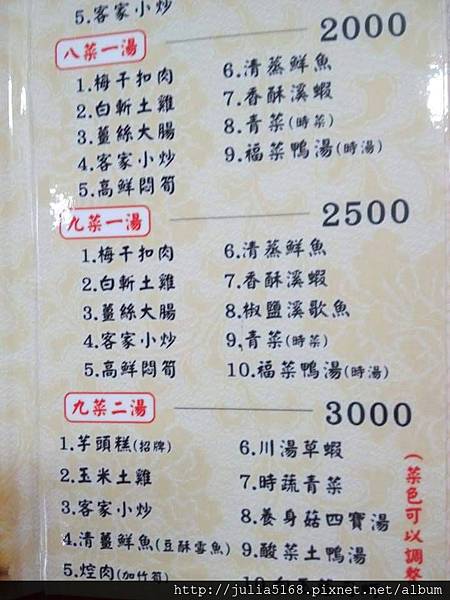 5.客家小炒
八菜一湯 2000
1.梅干扣肉
2.白斬土雞
3.薑絲大腸
4.客家小炒
5.高鮮悶筍
6.清蒸鮮魚
7.香酥溪蝦
8.青菜(時菜)
9.福菜鴨湯(時湯)
九菜一湯 2500
1.梅干扣肉
2.白斬土雞
3.薑絲大腸
4.客家小炒
5.高鮮悶筍
6.清蒸鮮魚
7.香酥溪蝦
8.椒鹽溪歌魚
9,青菜(時菜)
10.福菜鴨湯(時湯)
九菜二湯 3000
1.芋頭糕(招牌)
2.玉米土雞
3.客家小炒
4.清薑鮮魚(豆酥雪魚)
5.焢肉(加竹筍)
6.川湯草蝦
7.時蔬青菜
8.養身菇四寶湯
9.酸菜土鴨湯
(菜色可以調整
http://julia5168.pixnet.net/album